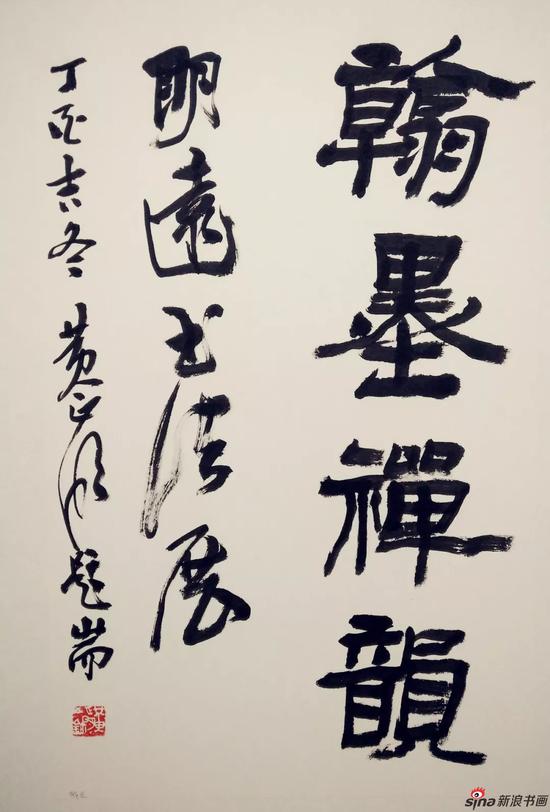 翰墨禪韻
明遠书法展
丁酉吉冬 黄正明题耑
sina新浪书画